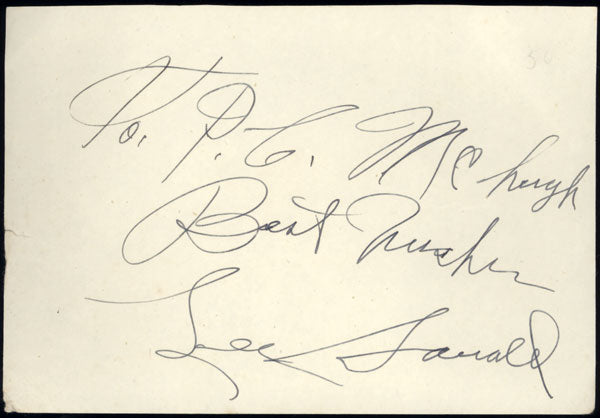 To. P. C. McHugh
Best Wishes
Lee Savold